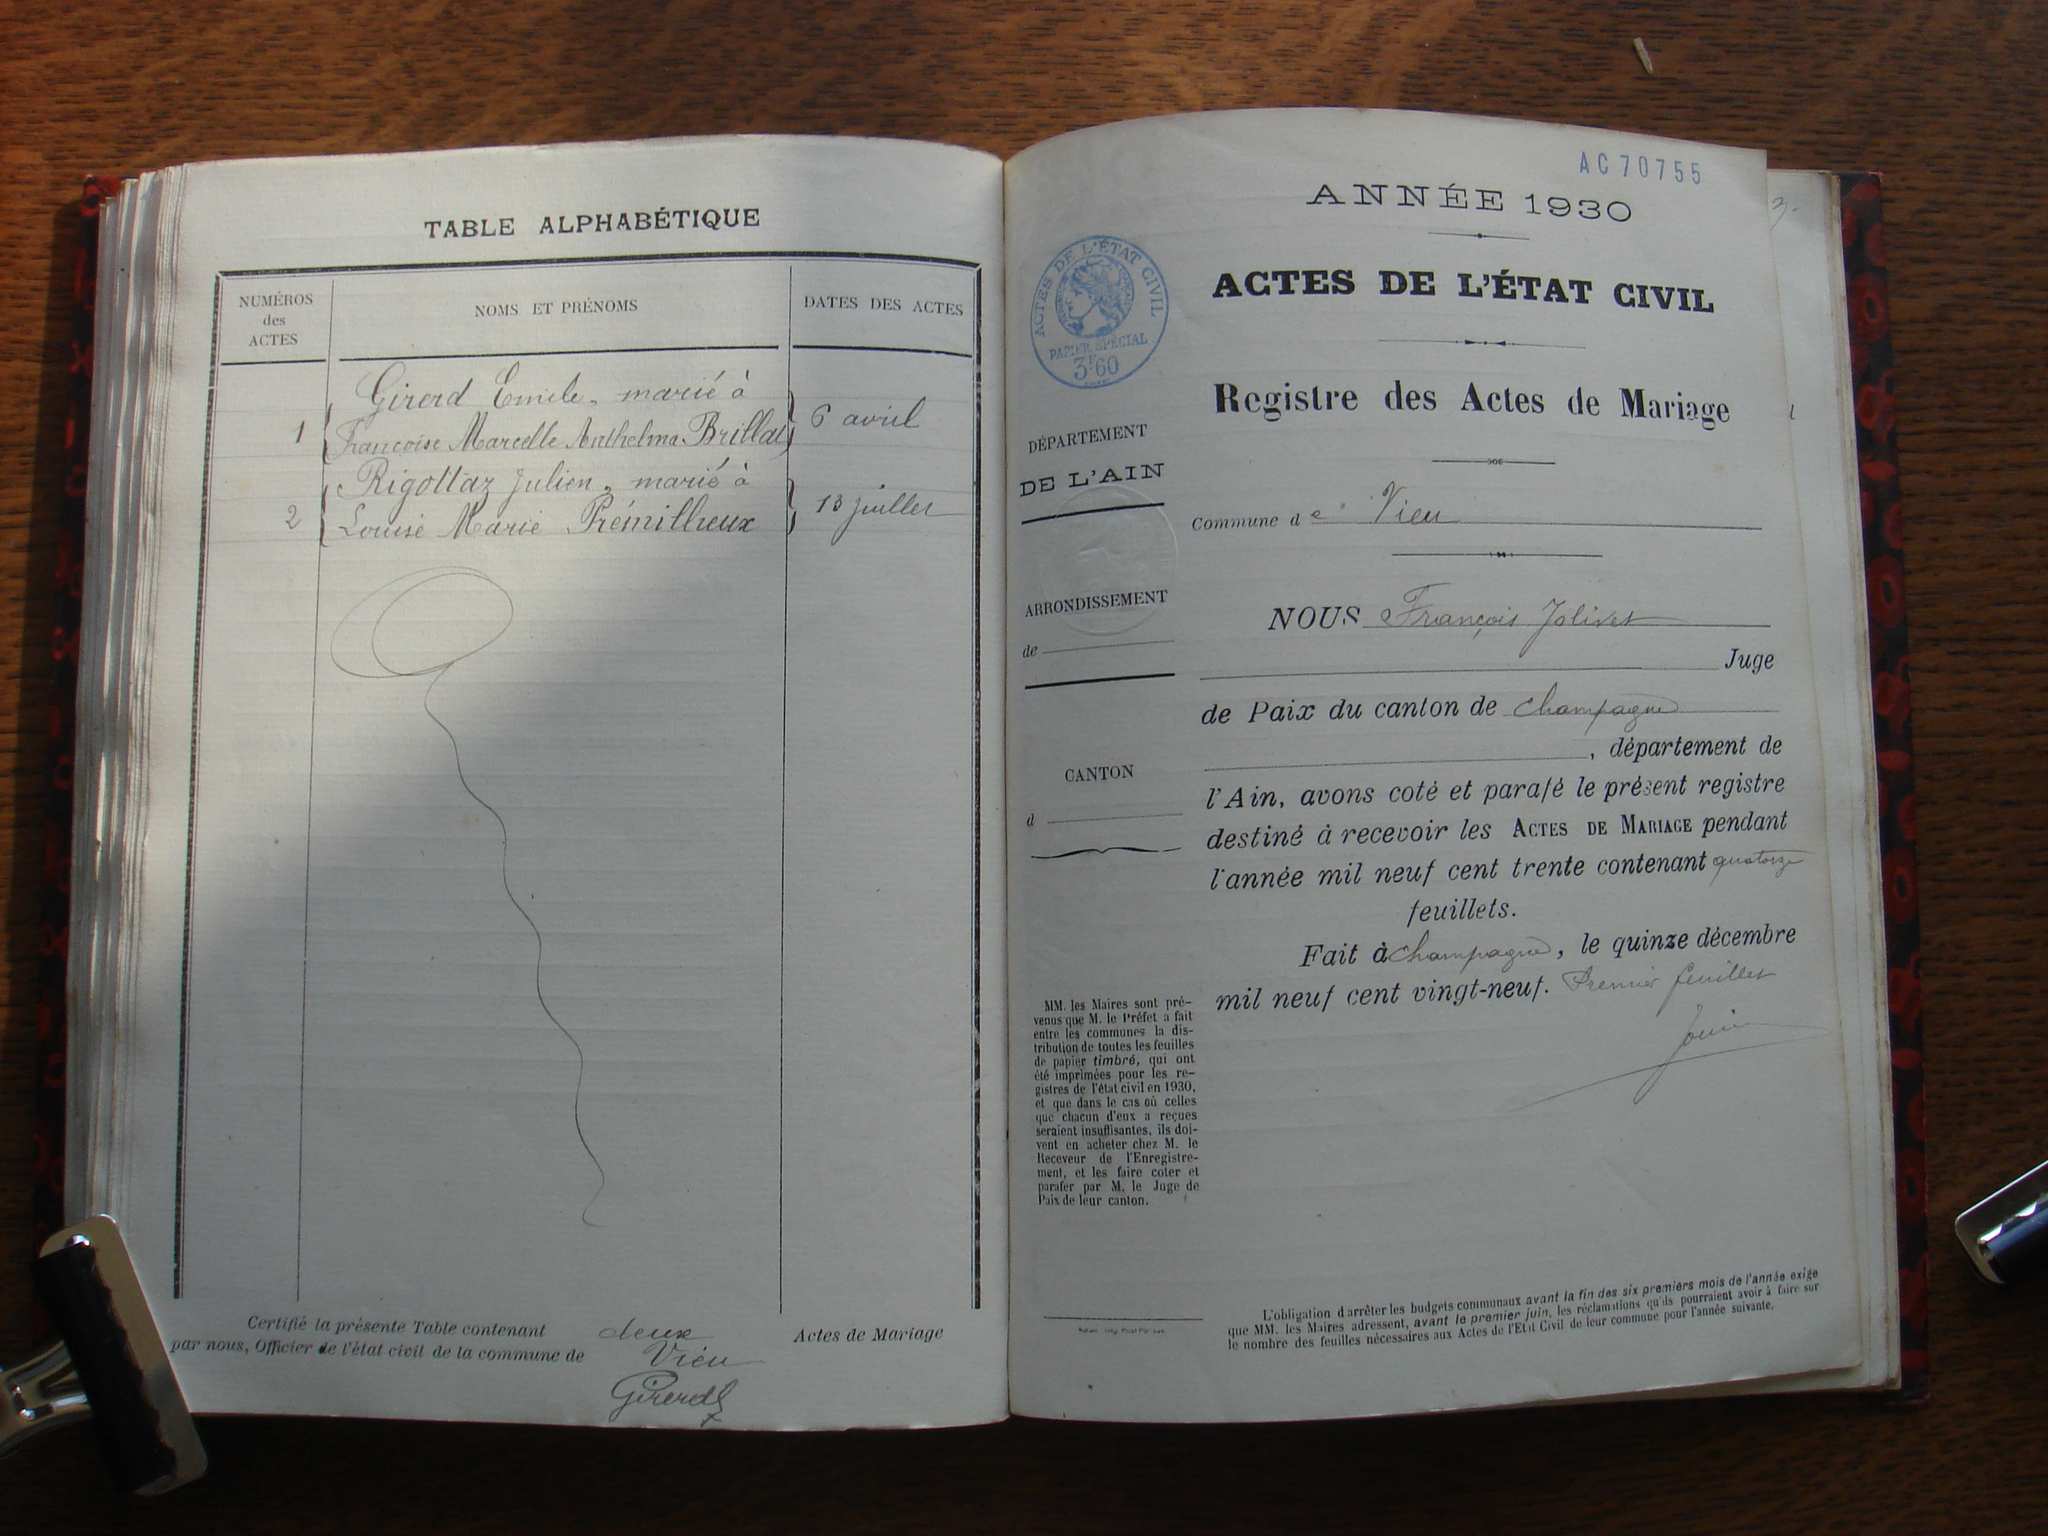 TABLE ALPHABÉTIQUE
NUMÉROS
des
ACTES
NOMS ET PRÉNOMS
DATES DES ACTES
1
Girerd Emile, marié à
Françoise Marcelle Anthelma Brillat
6 avril
2
Rigottaz Julien, marié à
Louise Marie Prémillieux
13 juillet
Certifié la présente Table contenant deux Actes de Mariage
par nous, Officier de l'état civil de la commune de Vieu
Girerd
AC70755
ANNÉE 1930
ACTES DE L'ÉTAT CIVIL
ACTES DE L'ÉTAT CIVIL
PAPIER SPÉCIAL
3F60
Registre des Actes de Mariage
DÉPARTEMENT
DE L'AIN
Commune de Vieu
ARRONDISSEMENT
de
CANTON
d
NOUS François Jolivet
Juge
de Paix du canton de Champagne
, département de
l'Ain, avons coté et parafé le présent registre
destiné à recevoir les ACTES DE MARIAGE pendant
l'année mil neuf cent trente contenant quatorze
feuillets.
Fait à Champagne, le quinze décembre
mil neuf cent vingt-neuf. Premier feuillet
MM. les Maires sont pré-
venus que M. le Préfet a fait
entre les communes la dis-
tribution de toutes les feuilles
de papier timbré, qui ont
été imprimées pour les re-
gistres de l'état civil en 1930,
et que dans le cas où celles
que chacun d'eux a reçues
seraient insuffisantes, ils doi-
vent en acheter chez M. le
Receveur de l'Enregistre-
ment, et les faire coter et
parafer par M. le Juge de
Paix de leur canton.
L'obligation d'arrêter les budgets communaux avant la fin des six premiers mois de l'année exige
que MM. les Maires adressent, avant le premier juin, les réclamations qu'ils pourraient avoir à faire sur
le nombre des feuilles nécessaires aux Actes de l'Etat Civil de leur commune pour l'année suivante.